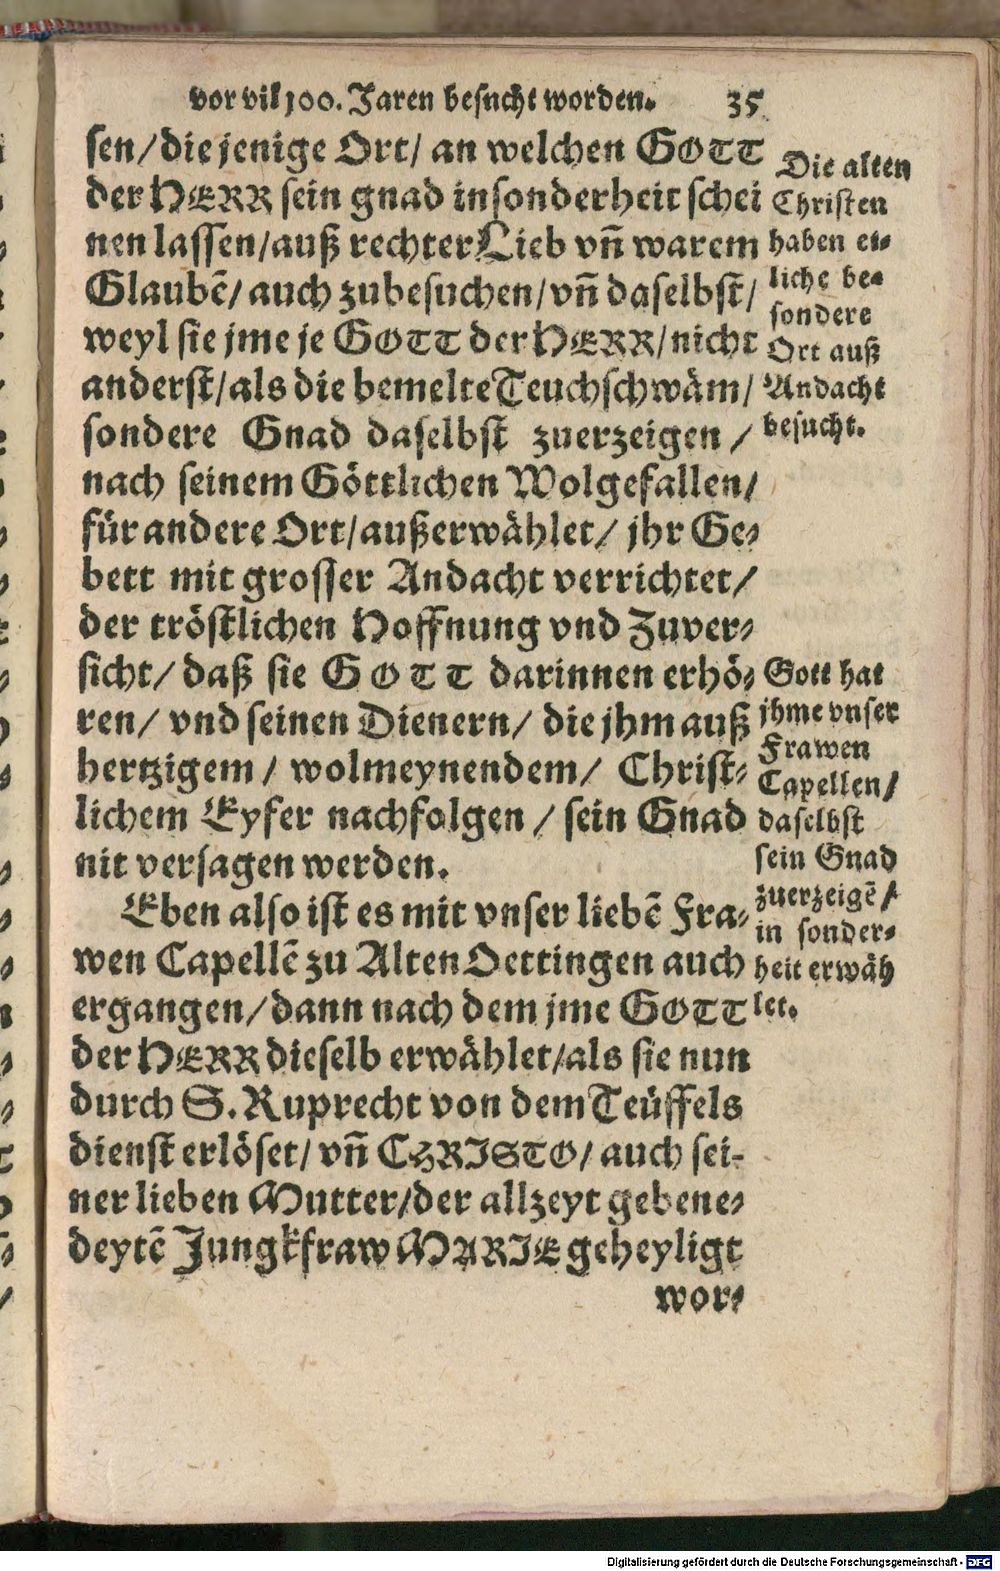 vor vil 100. Jaren besucht worden. 35
sen/ die jenige Ort/ an welchen GOTT
der HERR sein gnad insonderheit schei
nen lassen/ auß rechter Lieb vñ warem
Glaubē/ auch zubesuchen/ vñ daselbst/
weyl sie jme je GOTT der HERR/ nicht
anderst/ als die bemelte Teuchschwäm/
sondere Gnad daselbst zuerzeigen /
nach seinem Göttlichen Wolgefallen/
für andere Ort/ außerwählet/ jhr Ge⸗
bett mit grosser Andacht verrichtet/
der tröstlichen Hoffnung vnd Zuver⸗
sicht/ daß sie GOTT darinnen erhö⸗
ren/ vnd seinen Dienern/ die jhm auß
hertzigem / wolmeynendem/ Christ⸗
lichem Eyfer nachfolgen / sein Gnad
nit versagen werden.
Eben also ist es mit vnser liebē Fra⸗
wen Capellē zu Alten Oettingen auch
ergangen/ dann nach dem jme GOTT
der HERR dieselb erwählet/ als sie nun
durch S. Ruprecht von dem Teüffels
dienst erlöset/ vñ CHRISTO/ auch sei-
ner lieben Mutter/ der allzeyt gebene⸗
deytē Jungkfraw MARIE geheyligt
wor⸗
Die alten
Christen
haben et⸗
liche be⸗
sondere
Ort auß
Andacht
besucht.
Gott hat
jhme vnser
Frawen
Capellen/
daselbst
sein Gnad
zuerzeigē/
in sonder⸗
heit erwäh
let.
Digitalisierung gefördert durch die Deutsche Forschungsgemeinschaft - DFG